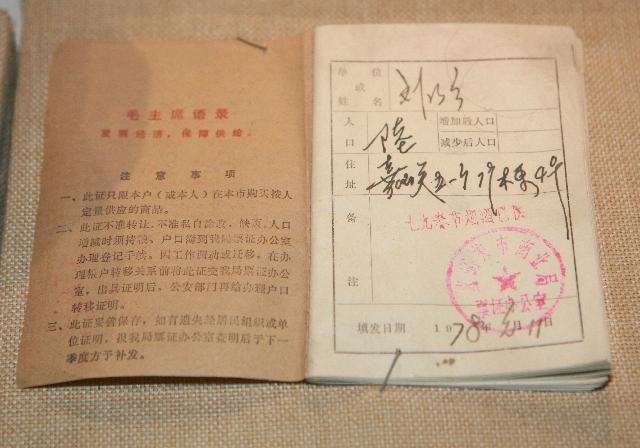 毛主席语录
发展经济，保障供给。
注意事项
一、此证只限本户（或本人）在本市购买按人
定量供应的商品。
二、此证不准转让，不准私自涂改，缺页，人口
增减时须持粮、户口簿到我局票证办公室
办理登记手续。因工作调动或迁移，在办
理账户转移关系前将此证交我局票证办公
室，出具证明后，公安部门再给办理户口
转移证明。
三、此证妥善保存，如有遗失经居民组织或单
位证明，报我局票证办公室查明后于下一
季度方予补发。
单位
或
姓名
刘
人
口
陆
增加后人口
减少后人口
住
址
嘉峡五
备
注
市商业局
票证办公室
填发日期 1978年 月11日